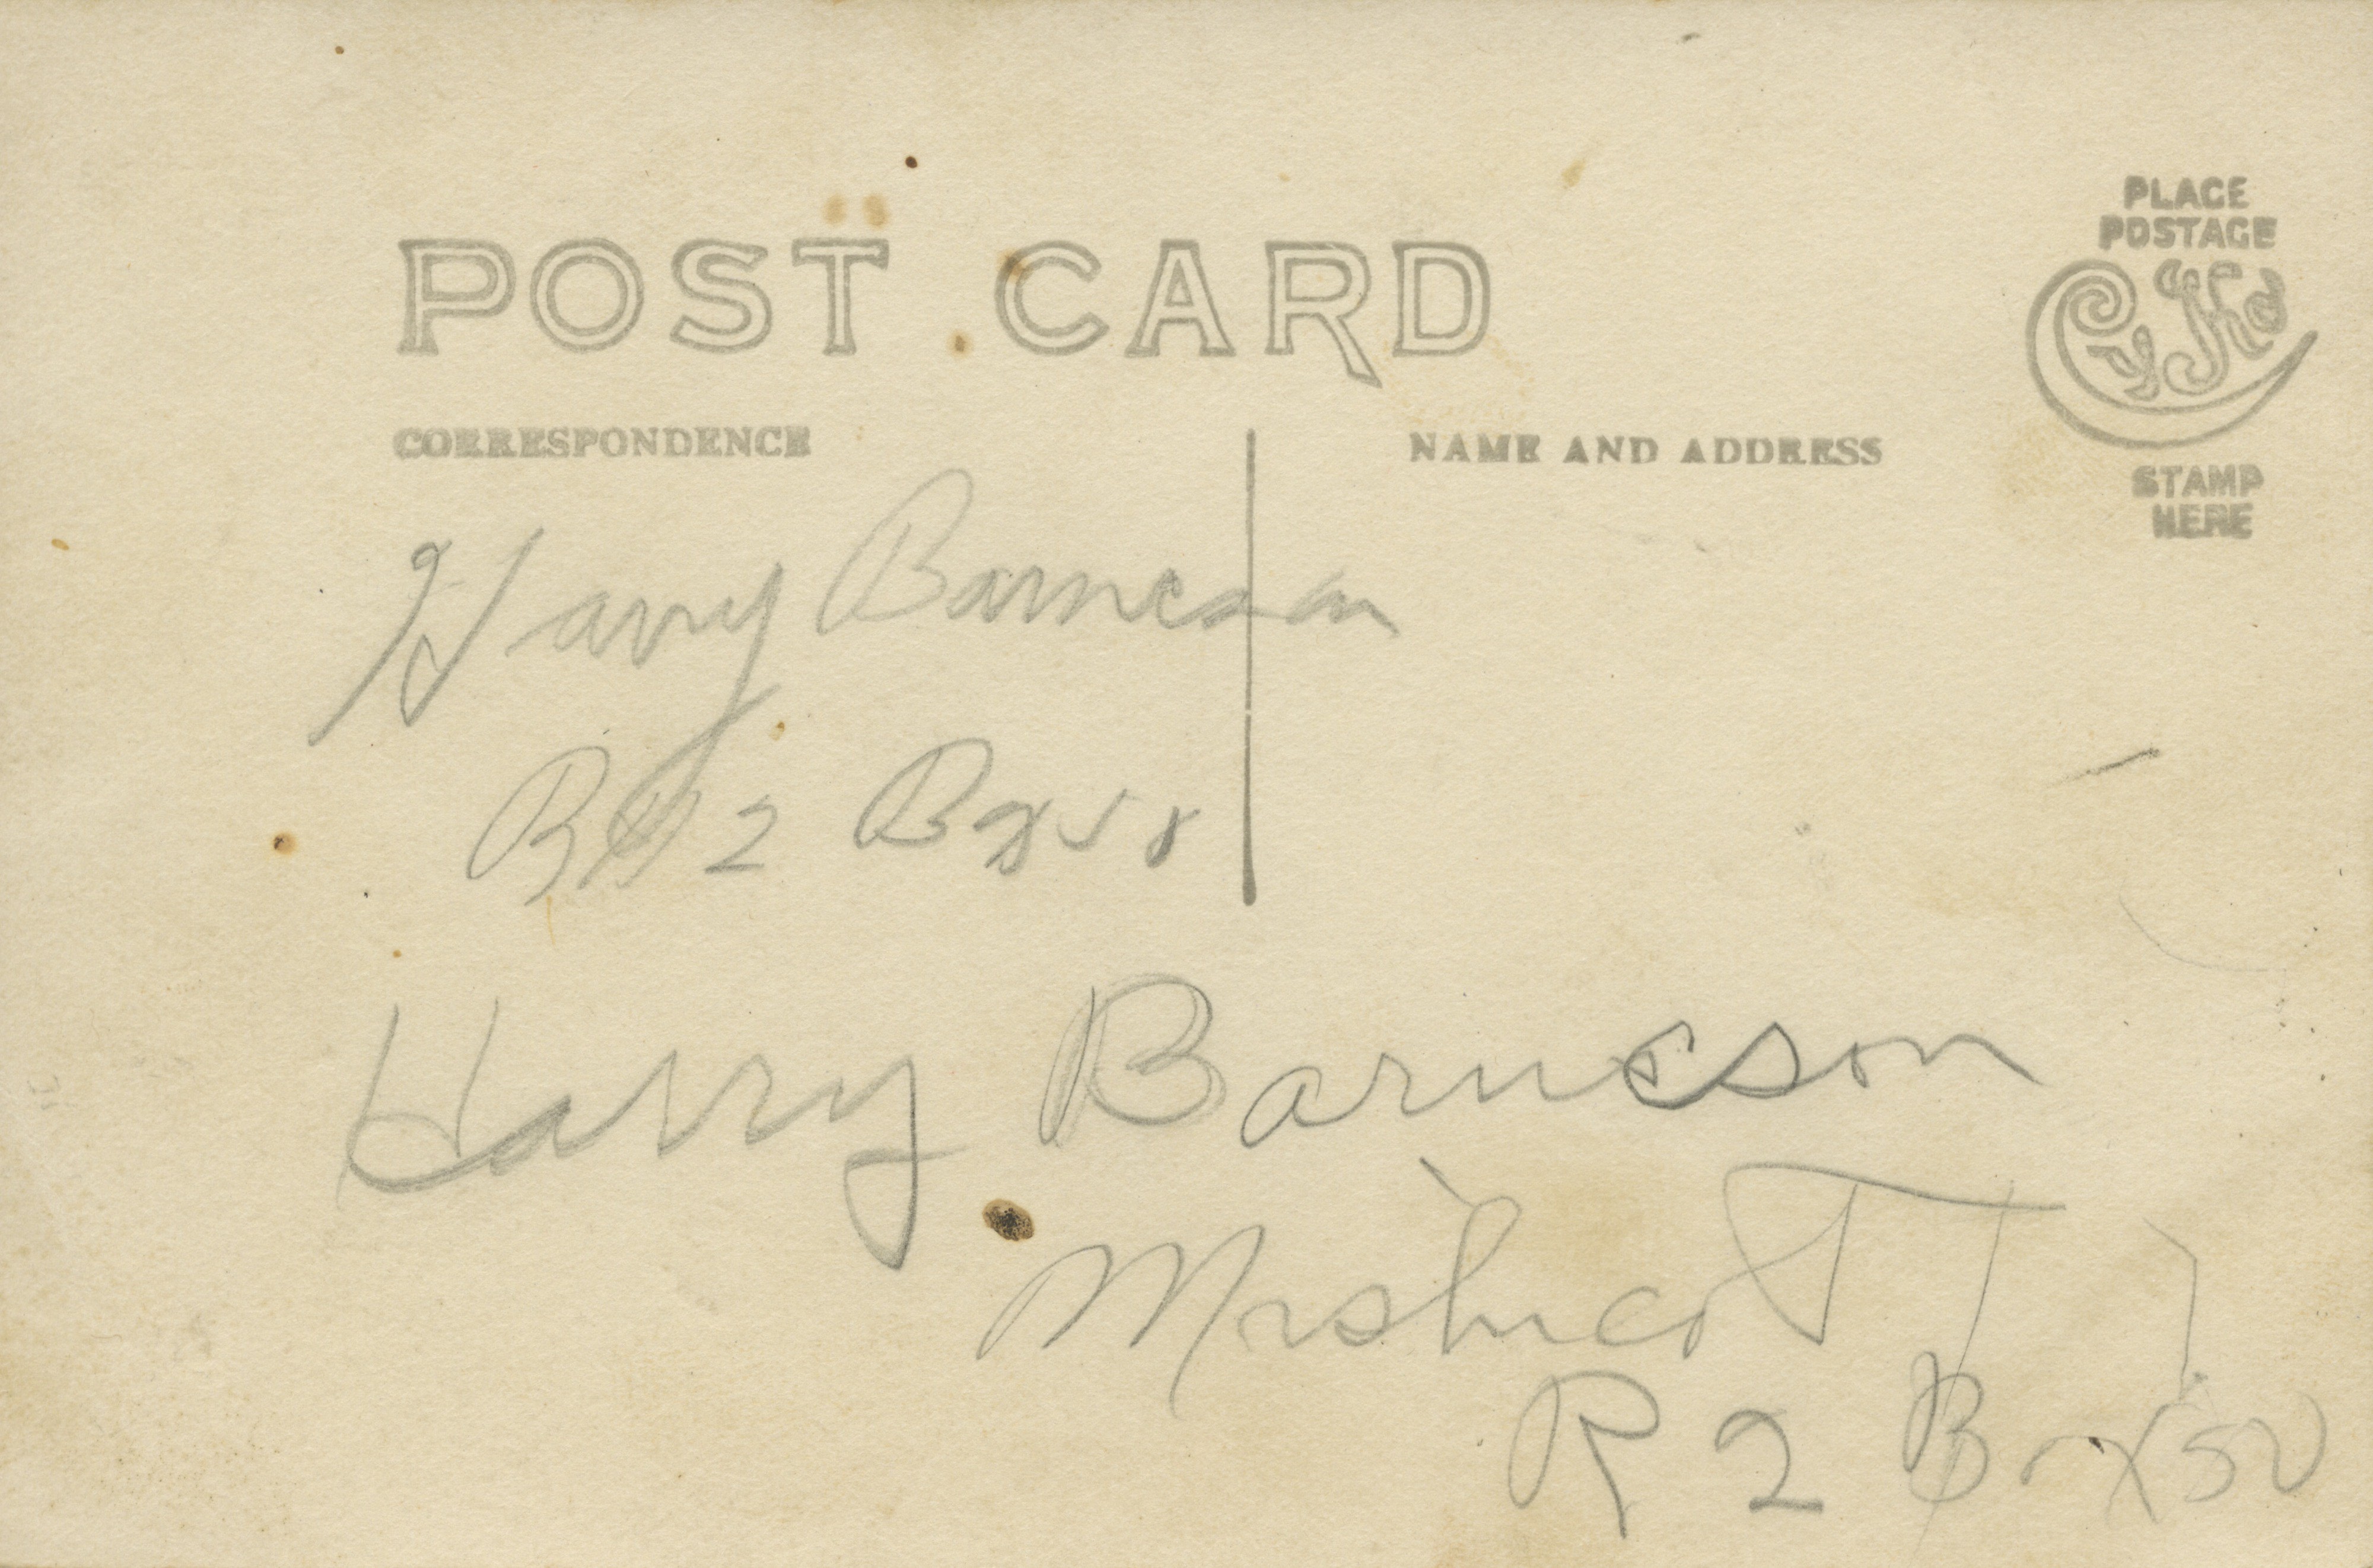 POST CARD
PLACE
POSTAGE
CyKo
STAMP
HERE
CORRESPONDENCE
NAME AND ADDRESS
Harry Barneson
R 2 Box
Harry Barneson
Mishicot
R 2 Box 50